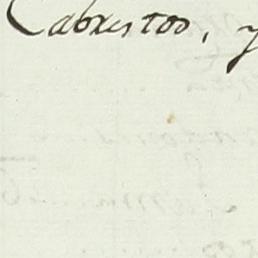 Cabrestos, y